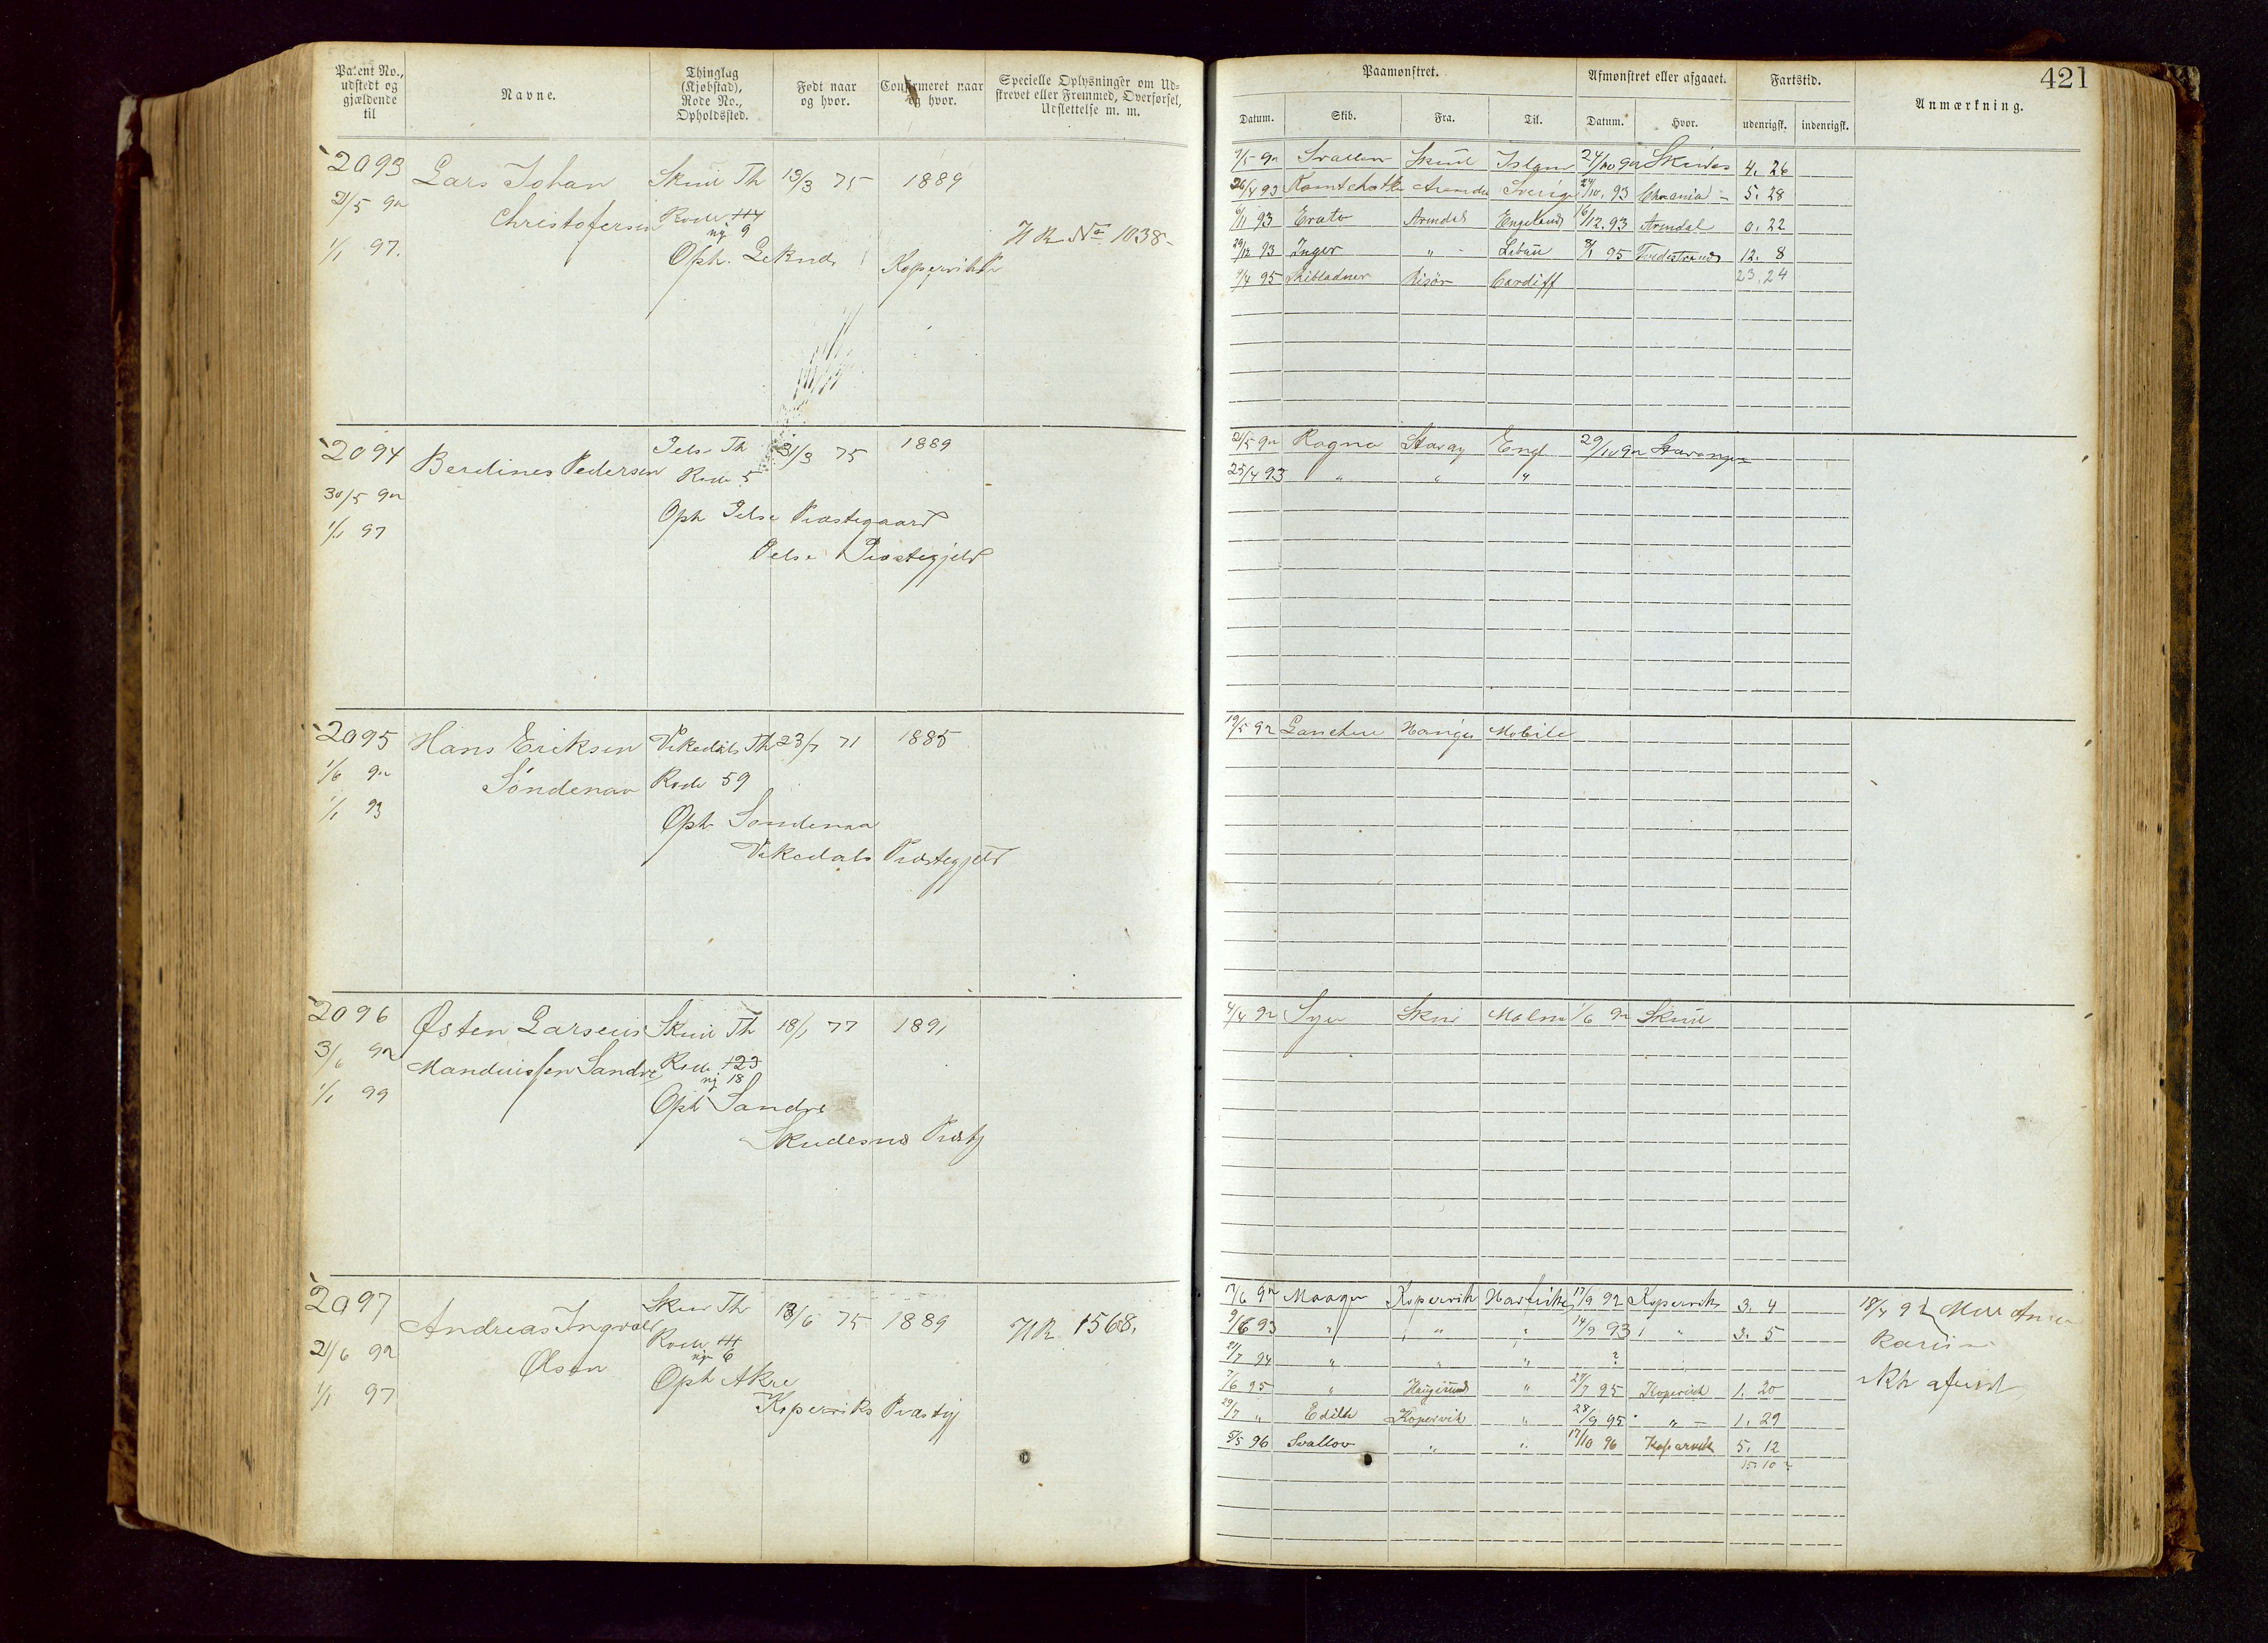 Patent No., udstedt og gjældende til
Navne.
Thinglag (Kjøbstad), Rode No., Opholdssted.
Født naar og hvor.
Confirmeret naar og hvor.
Specielle Oplysninger om Udskrevet eller Fremmed, Overførsel, Udslettelse m. m.
2093 Lars Johan Skud Th 13/3 75 1889
21/5 92 Christofersen Rode 114
ny 9
1/1 97. Oph. Kopervik
H R No 1038
2094 Berdines Pedersen Jelse Th 31/3 75 1889
30/5 92 Rode 5
1/1 97 Oph Jelse Præstegaard
Jelse Præstegjeld
2095 Hans Eriksen Vikedals Th 23/7 71 1885
1/6 92 Søndenaa Rode 59
1/1 93 Oph Søndenaa
Vikedals Præstegjeld
2096 Østen Larseus Skud Th 18/1 77 1891
3/6 92 Sandve Rode 123
ny 18
1/1 99 Oph Sandve
Skudesnes Præstgj
2097 Andreas Ingvald Skud Th 18/6 75 1889 H R 1568.
21/6 92 Olsen Rode 111
ny 6
1/1 97 Oph Akre
Koperviks Præstgj
421
Paamønstret.
Afmønstret eller afgaaet.
Fartstid.
Anmærkning.
Datum. Skib. Fra. Til. Datum. Hvor. udenrigsk. indenrigsk.
9/5 92 Svallen Skud Island 24/10 92 Skudes 4. 26
26/4 93 Kamtchatka Arendal Sverige 24/10. 93 Chrania 5. 28
6/11 93 Erato Arendal Engeland 16/12. 93 Arendal 0. 22
29/12 93 Inger " Libau 8/1 95 Tvedestrand 12. 8
9/4 95 Skibladner Risør Cardiff 23. 24
21/5 92 Ragna Stavag Engl 29/10 92 Stavanger
25/4 93 " " "
19/5 92 Hauges Mobile
4/4 92 Skud Malmø 1/6 92 Skud
17/6 92 Maagen Kopervik 17/9 92 Kopervik 3. 4
9/6 93 " " " 14/9 93 " 3. 5
21/7 94 " " " ?
7/6 95 " Haugesund " 27/7 95 Kopervik 1. 20
29/7 " Edith Kopervik " 28/9 95 " 1. 29
5/5 96 Svallov " " 17/10 96 Kopervik 5. 12
15. 10
18/4 92